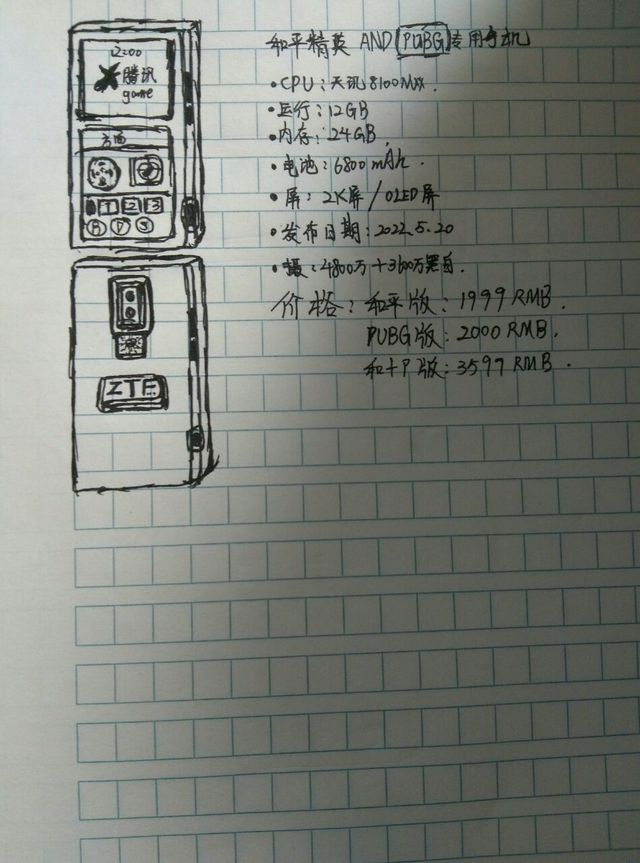 和平精英 AND PUBG 专用手机
•CPU：天讯8100MAX.
•运行：12GB
•内存：24GB.
•电池：6800mAh.
•屏：2K屏/OLED屏
•发布日期：2022.5.20
•摄：4800万+3600万黑白.
价格：和平版：1999RMB.
PUBG版：2000RMB.
和+P版：3599RMB.
12:00
腾讯
game
1 2 3
ZTE